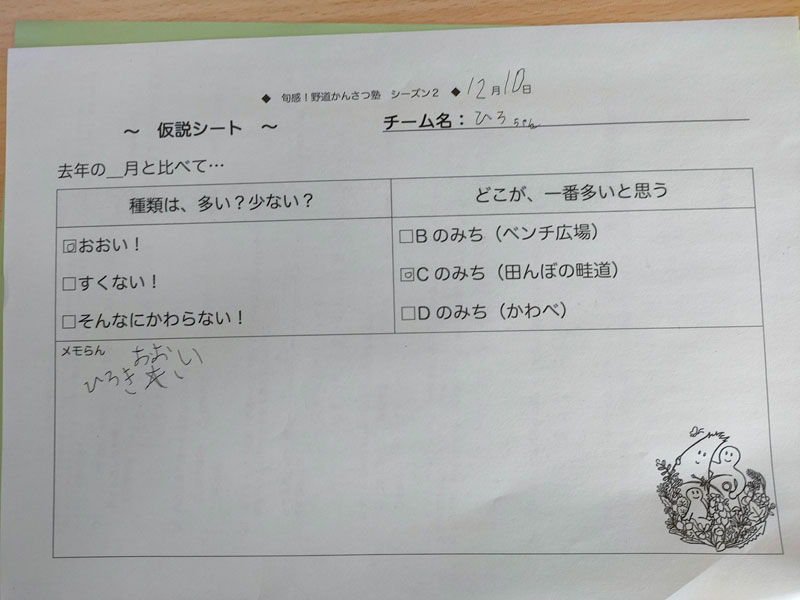 ◆ 旬感！野道かんさつ塾 シーズン2 ◆ 12月10日
～ 仮説シート ～
チーム名：ひろちゃん
去年の__月と比べて…
種類は、多い？少ない？
☑おおい！
□すくない！
□そんなにかわらない！
どこが、一番多いと思う
□Bのみち（ベンチ広場）
☑Cのみち（田んぼの畦道）
□Dのみち（かわべ）
メモらん
おおい
ひろき